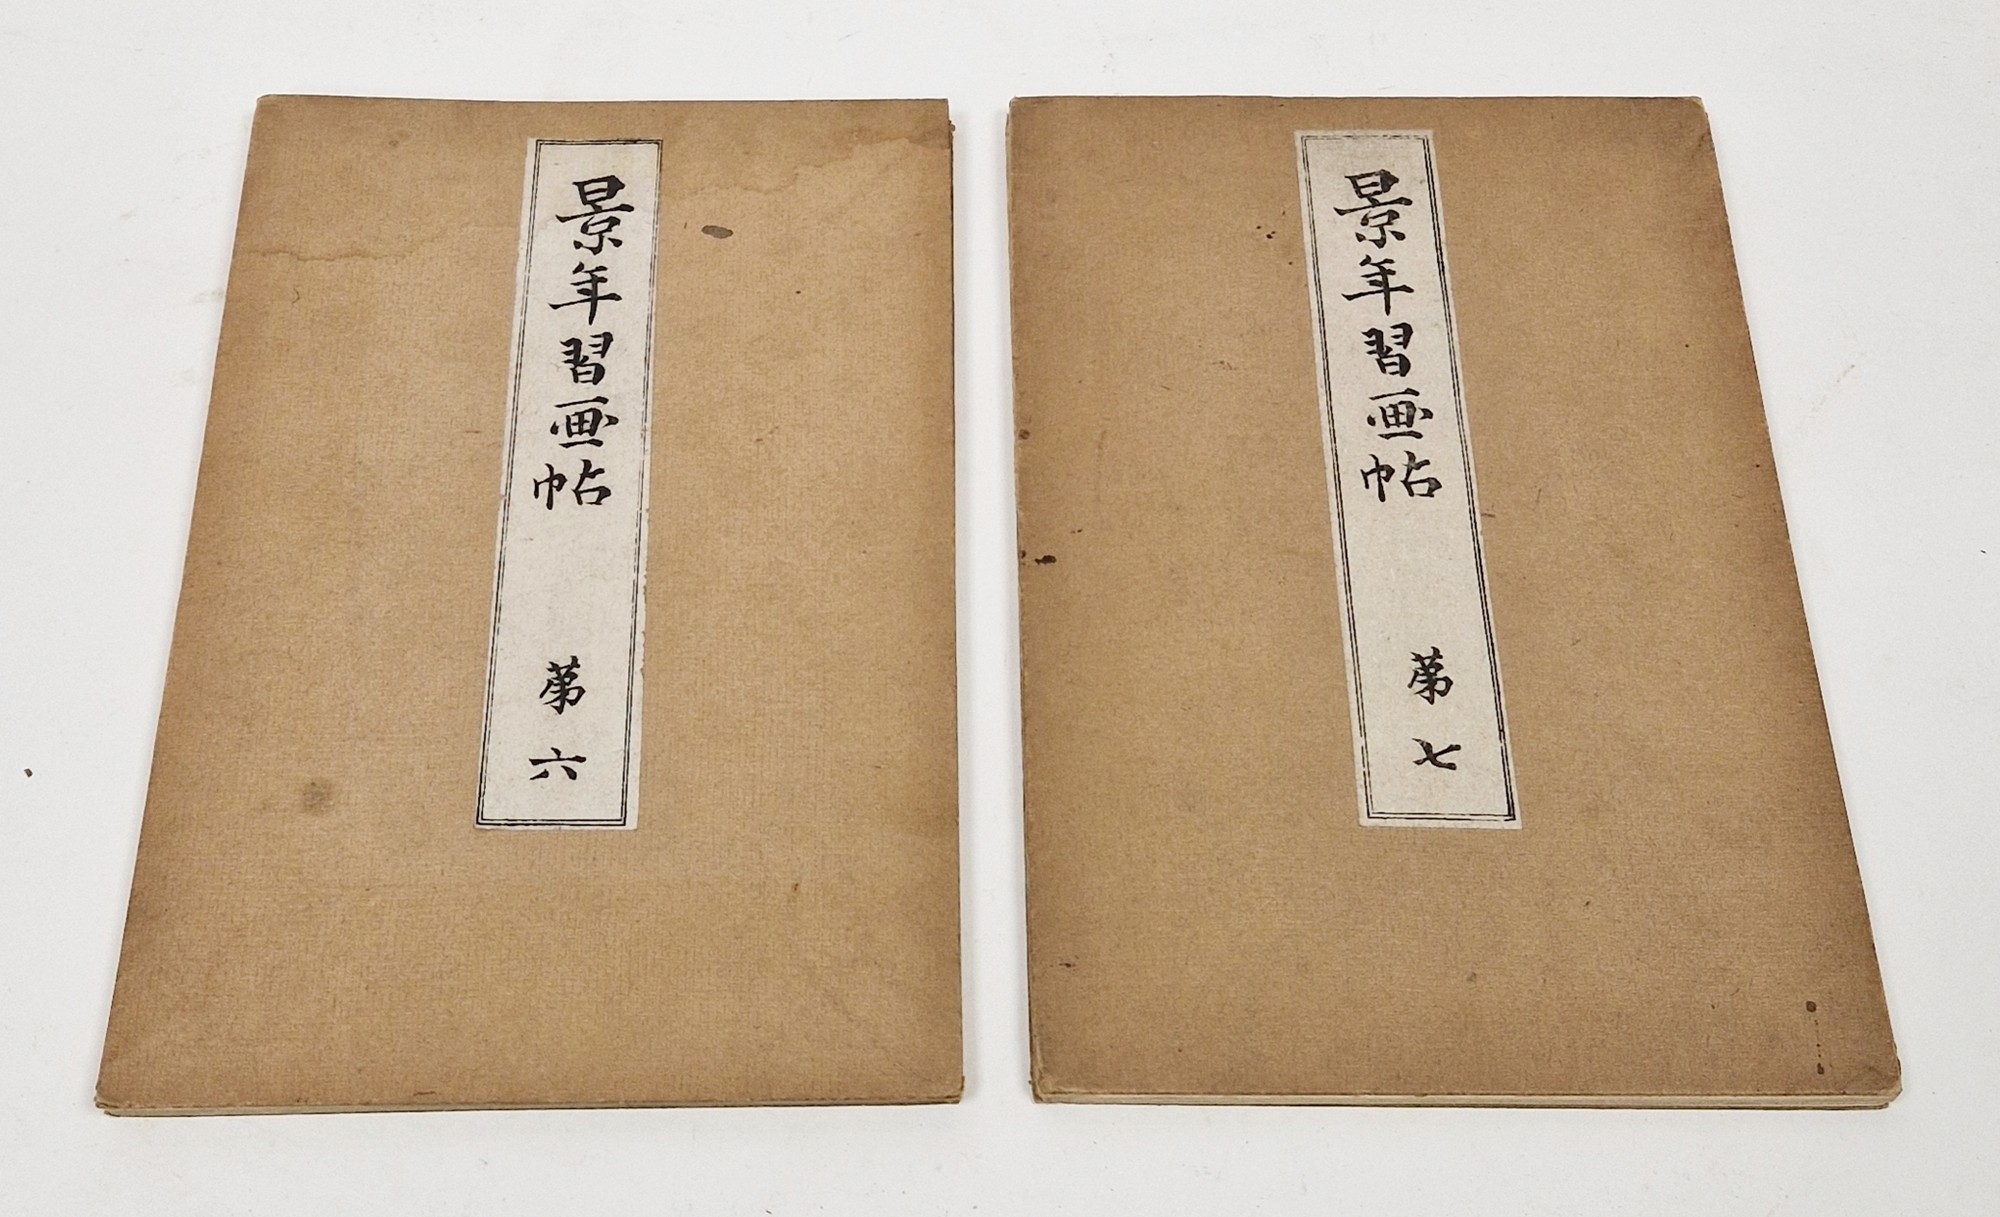 景年習画帖
第六
景年習画帖
第七